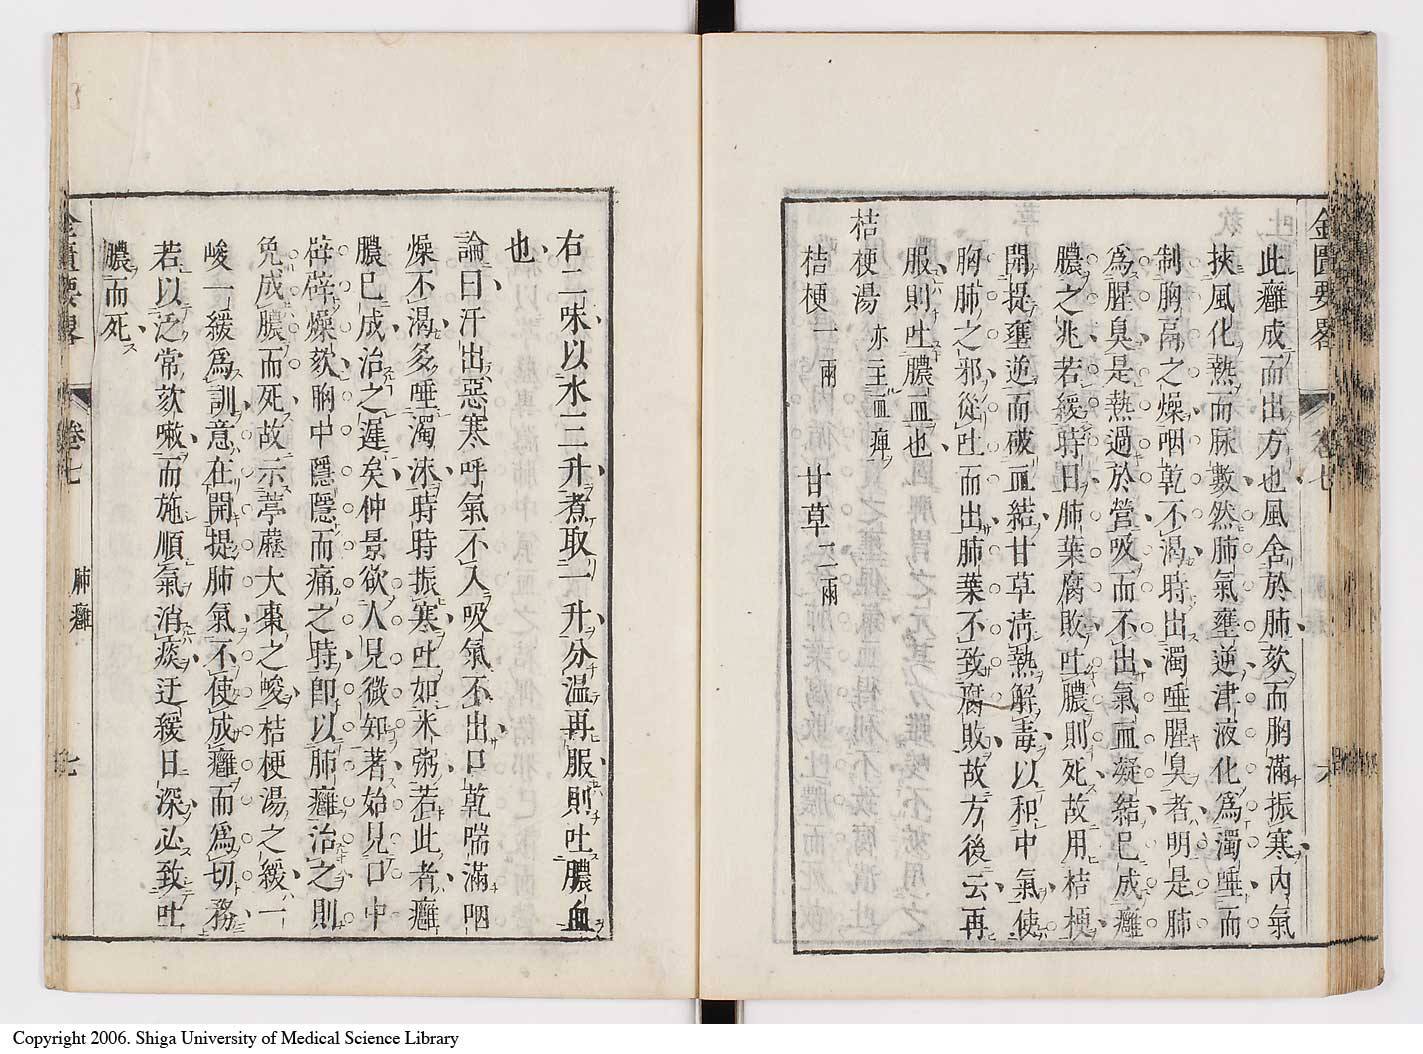 金匱要畧
卷七
六
此癰成而出方也風舍於肺欬而胸滿振寒内氣
挾風化熱而脉數然肺氣壅逆津液化爲濁唾而
制胸鬲之燥咽乾不渴時出濁唾腥臭者明是肺
爲腥臭是熱過於營吸而不出氣血凝結已成癰
膿之兆若緩時日肺葉腐敗吐膿則死故用桔梗
開提壅逆而破血結甘草清熱解毒以和中氣使
胸肺之邪從吐而出肺葉不致腐敗故方後云再
服則吐膿血也
桔梗湯 亦主血痺
桔梗一兩 甘草二兩
右二味以水三升煮取一升分温再服則吐膿血
也
論曰汗出惡寒呼氣不入吸氣不出口乾喘滿咽
燥不渴多唾濁沫時時振寒吐如米粥若此者癰
膿已成治之遲矣仲景欲人見微知著始見口中
辟辟燥欬胸中隱隱而痛之時即以肺癰治之則
免成膿而死故示葶藶大棗之峻桔梗湯之緩一
峻一緩爲訓意在開提肺氣不使成癰而爲切務
若以泛常欬嗽而施順氣消痰迂緩日深必致吐
膿而死
金匱要畧
卷七
肺癰
七
Copyright 2006. Shiga University of Medical Science Library